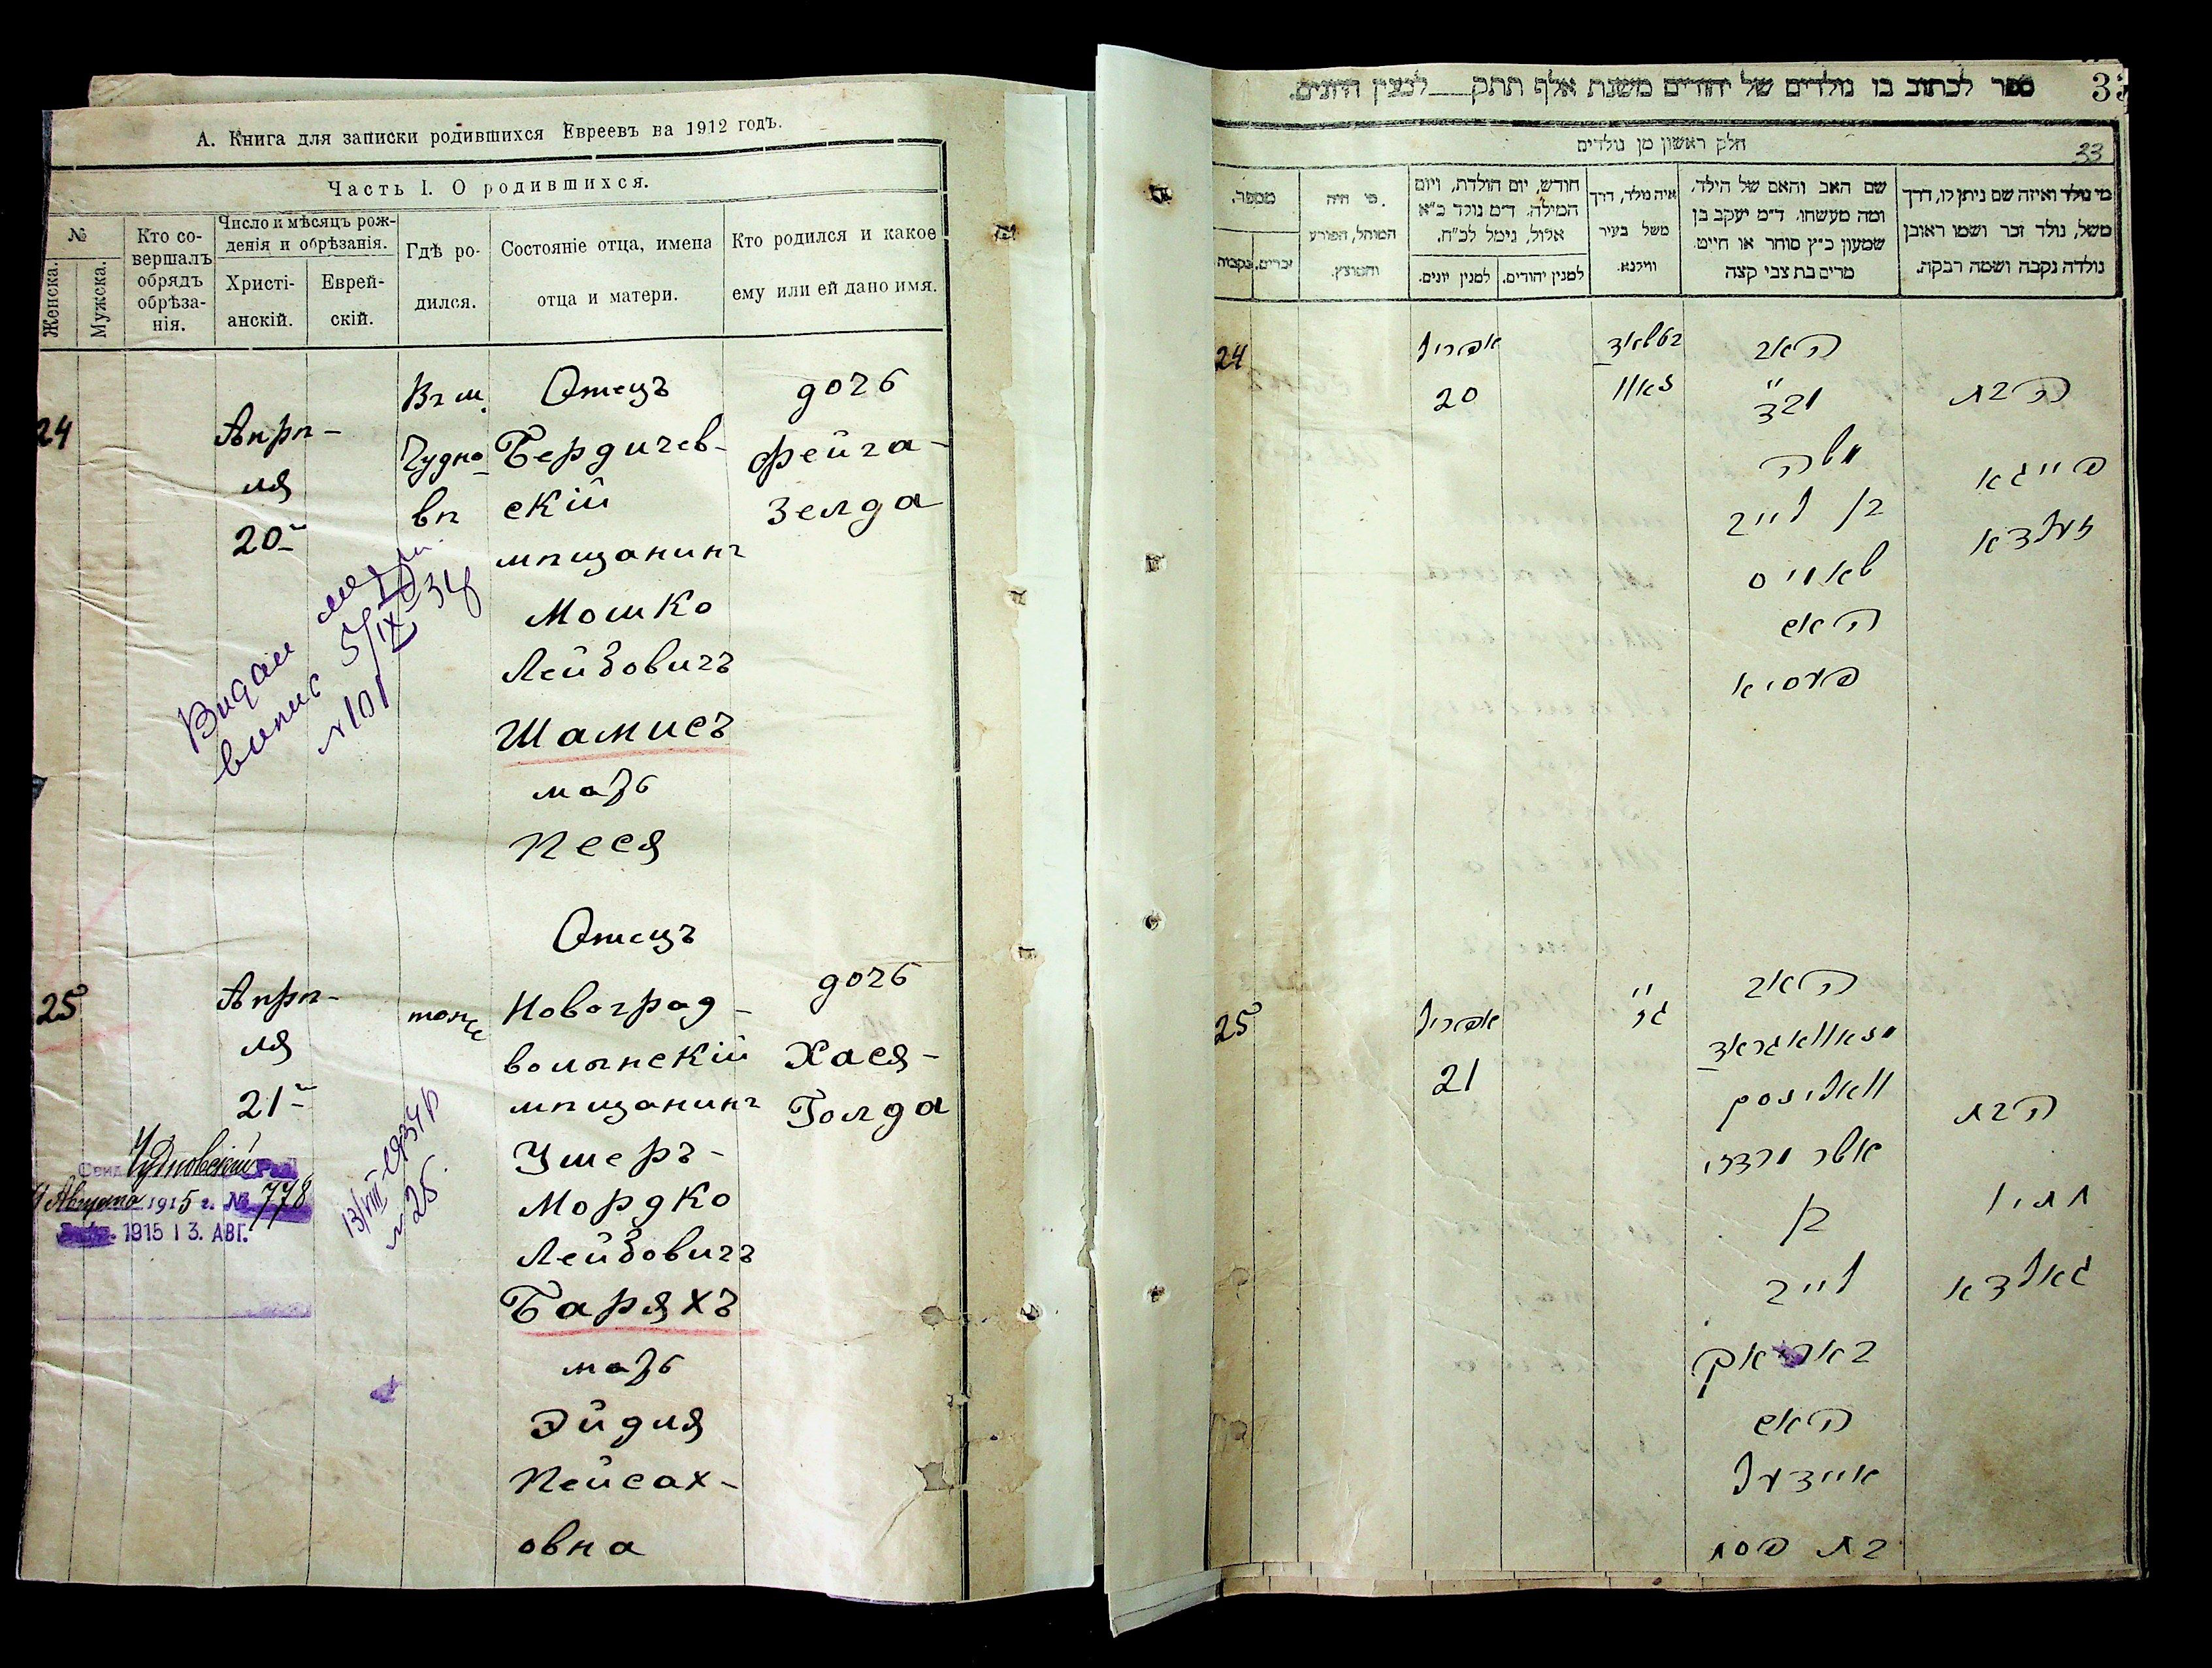 А. Книга для записки родившихся Евреевъ на 1912 годъ.
Часть I. О родившихся.
№
Женска.
Мужска.
Кто со-
вершалъ
обрядъ
обрѣза-
нія.
Число и мѣсяцъ рож-
денія и обрѣзанія.
Христі-
анскій.
Еврей-
скій.
Гдѣ ро-
дился.
Состояніе отца, имена
отца и матери.
Кто родился и какое
ему или ей дано имя.
24
Апрѣ-
ля
20
Въ м.
Чудно-
вѣ
Отецъ
Бердичев-
скій
мѣщанинъ
Мошко
Лейбовичъ
Шамисъ
мать
Песя
дочь
Фейга-
Зелда
Видан
випис 5/IX 34
№101
25
Апрѣ-
ля
21
тоже
Отецъ
Новоград-
волынскій
мѣщанинъ
Ушеръ-
Мордко
Лейбовичъ
Баряхъ
мать
Эйдля
Пейсах-
овна
дочь
Хася-
Голда
13/VIII-1934 р
№ 25
Чудновскій
Августа 1915 г. № 778
1915 13. АВГ.
ספר לכתוב בו נולדים של יהודים משנת אלף תתק—למנין היונים.
33
חלק ראשון מן נולדים
33
מי נולד ואיזה שם ניתן לו, דרך
משל, נולד זכר ושמו ראובן
נולדה נקבה ושמה רבקה.
שם האב והאם של הילד,
ומה מעשהו. ד״מ יעקב בן
שמעון כ״ץ סוחר או חייט.
מרים בת צבי קצה
איה נולד, דרך
משל בעיר
ווילנא.
חודש, יום הולדת, ויום
המילה. ד״מ נולד כ״א
אלול, נימל לכ״ח.
למנין יהודים.
למנין יונים.
מי היה
המוהל, הפורע
והמוצץ.
מספר.
זכרים.
נקבות
24
אפריל
20
האב
משה
בן לייב
שאמיס
האם
פעסיא
הבת
פייגא
זעלדא
25
אפריל
21
האב
נאוואגראד
וואלינסק
אשר מרדכי
בן
לייב
באריאך
האם
איידעל
בת פסח
הבת
חסיא
גאלדא